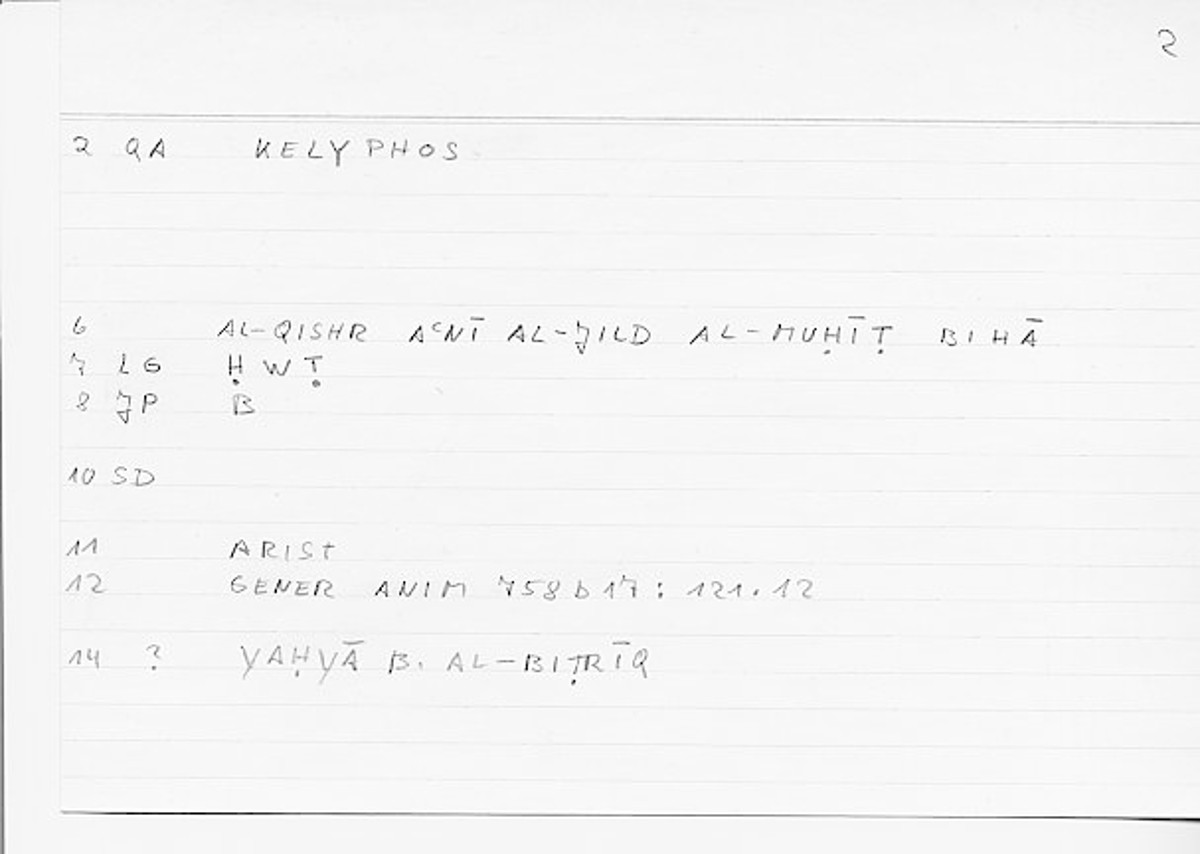 2
2 QA KELYPHOS
6 AL-QISHR AʿNĪ AL-JILD AL-MUḤĪṬ BIHĀ
7 LG Ḥ W Ṭ
8 JP B
10 SD
11 ARIST
12 GENER ANIM 758b17: 121.12
14 ? YAḤYĀ B. AL-BIṬRĪQ